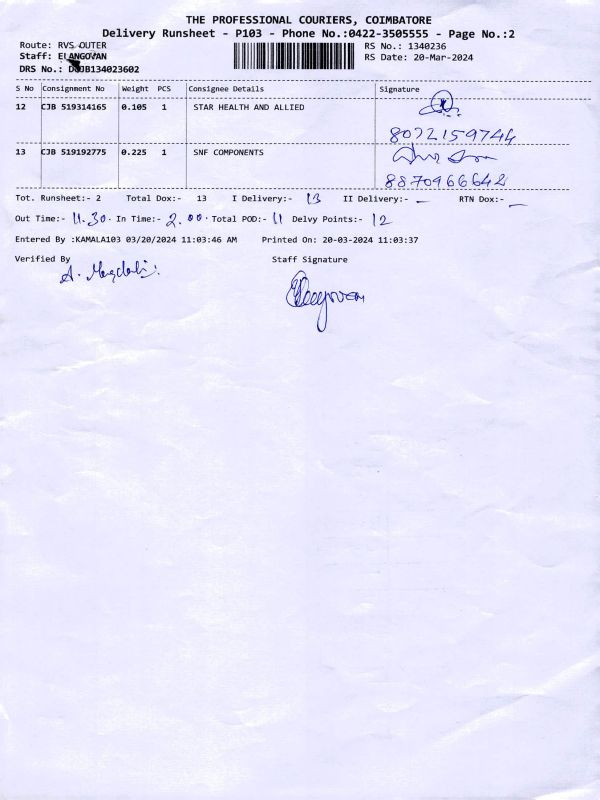 THE PROFESSIONAL COURIERS, COIMBATORE
Delivery Runsheet - P103 - Phone No.:0422-3505555 - Page No.:2
Route: RVS OUTER
RS No.: 1340236
Staff: ELANGOVAN
RS Date: 20-Mar-2024
DRS No.: DCJB134023602
S No Consignment No Weight PCS Consignee Details Signature
12 CJB 519314165 0.105 1 STAR HEALTH AND ALLIED
8072159744
13 CJB 519192775 0.225 1 SNF COMPONENTS
8870966642
Tot. Runsheet:- 2 Total Dox:- 13 I Delivery:- 13 II Delivery:- — RTN Dox:- —
Out Time:- 11.30. In Time:- 2.00. Total POD:- 11 Delvy Points:- 12
Entered By :KAMALA103 03/20/2024 11:03:46 AM Printed On: 20-03-2024 11:03:37
Verified By Staff Signature